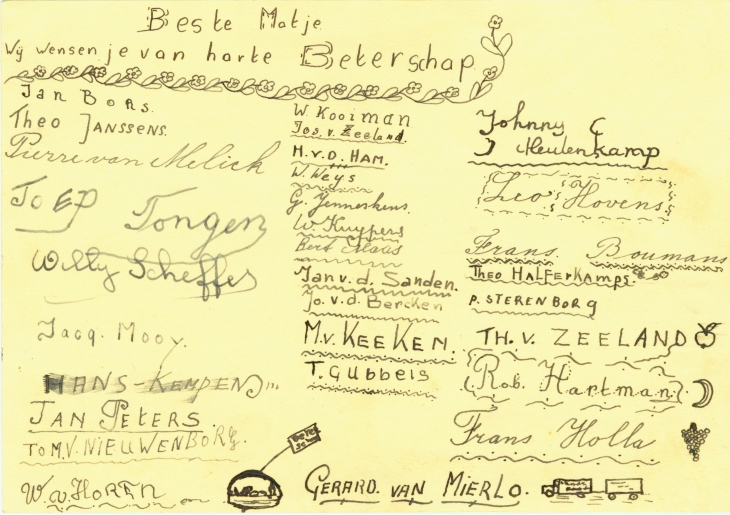 Beste Matje
Wij wensen je van harte Beterschap
Jan Bors.
Theo Janssens.
Pierre van Melick
Joep Tongen
Willy Scheffer
Jacq. Mooy.
HANS-KEMPEN
JAN PETERS
TOM.V. NIEUWENBORG.
W. v. HOREN
W. Kooiman
Jos. v. Zeeland.
H.V.D. HAM.
W. Weys
G. Jenneskens.
W. Kuypers
Bert Maas
Jan v. d. Sanden.
Jo. v. d. Bercken
M.v. KEEKEN.
T. Gubbels
GERARD. VAN MIERLO.
Johnny
Meulenkamp
Leo Hovens
Frans. Boumans
THEO HALFERKAMPS.
P. STERENBORG
TH. V. ZEELAND
(Rob. Hartman)
Frans Holla